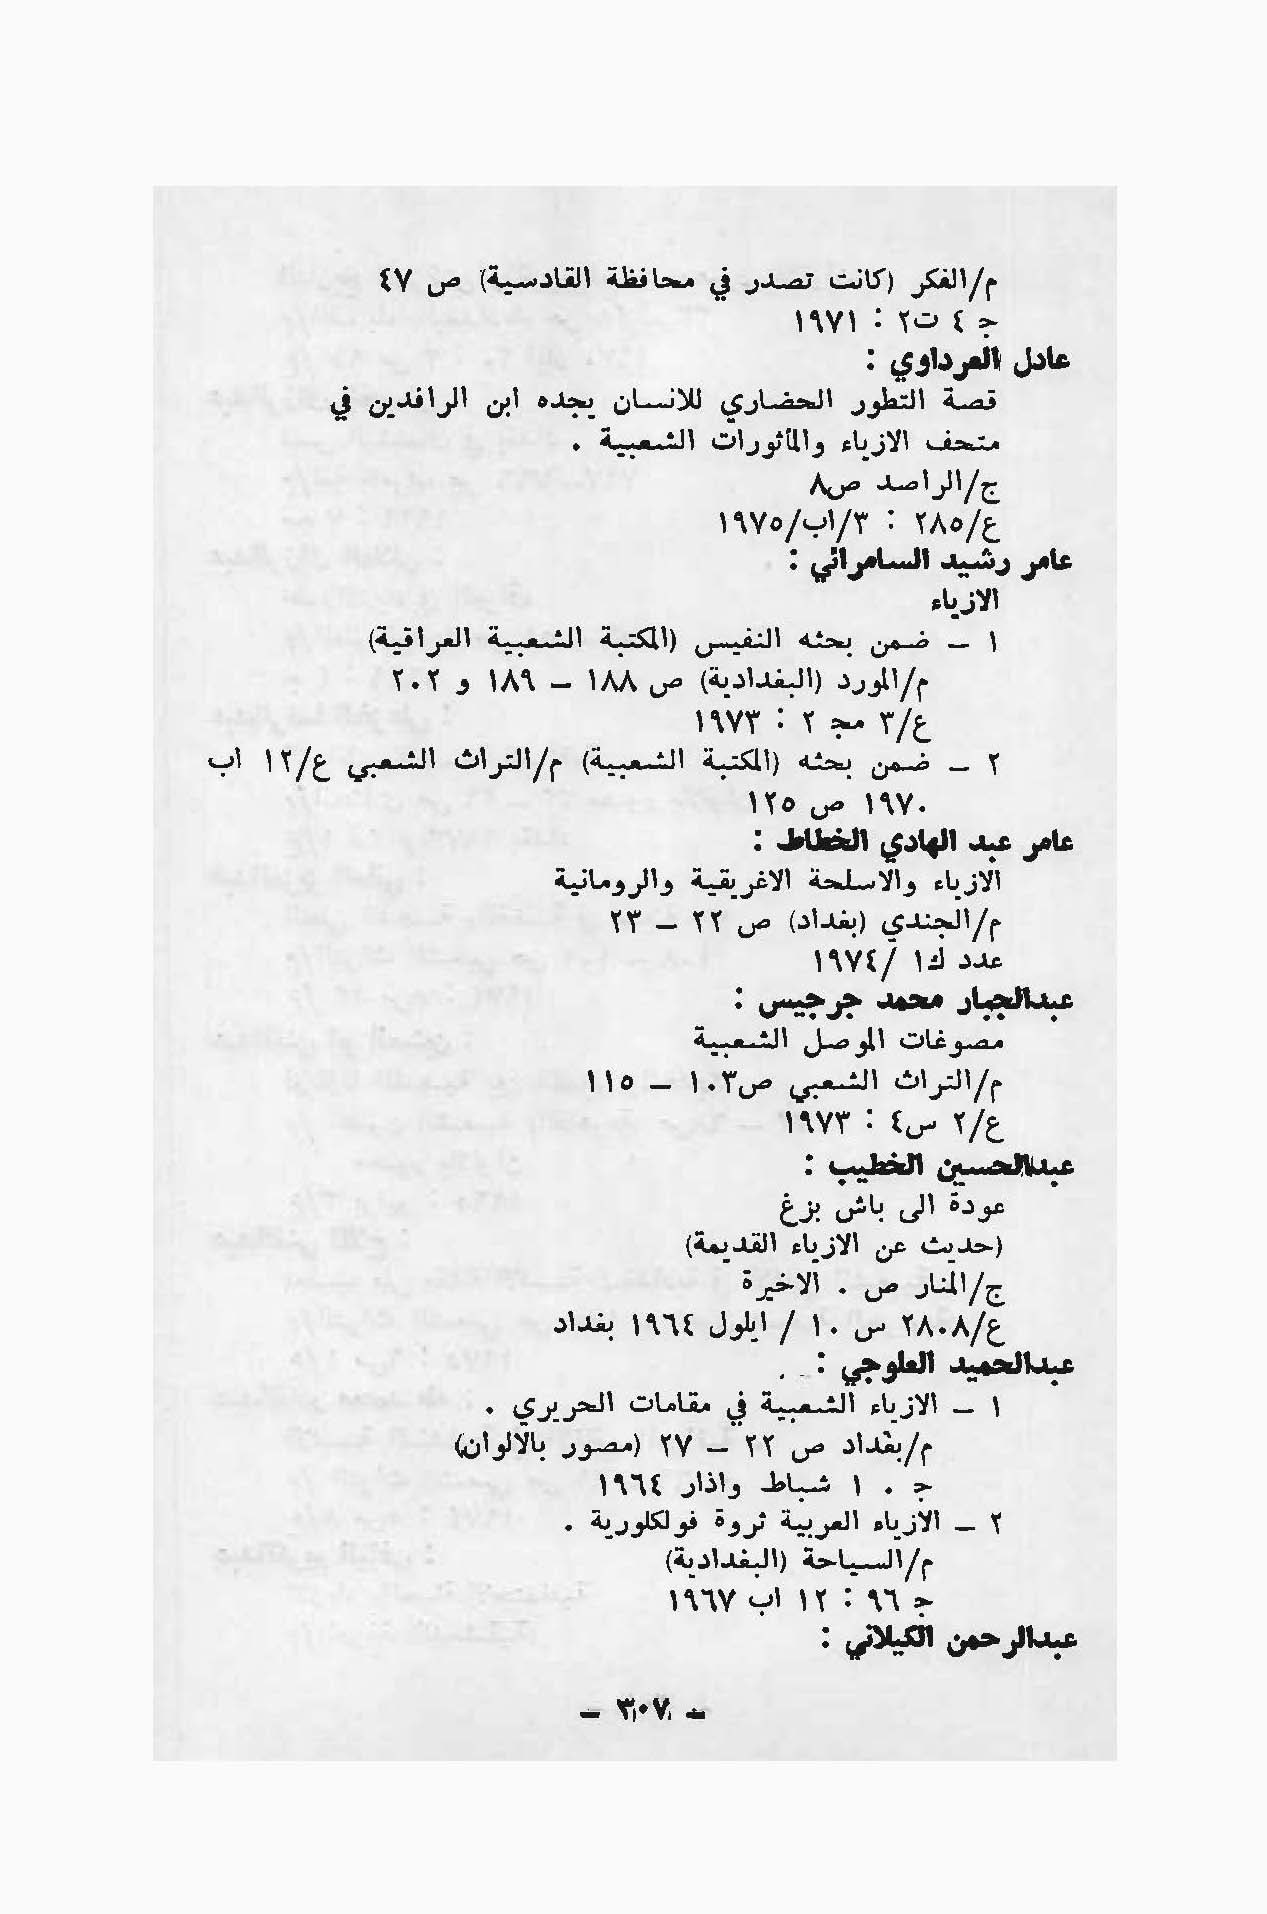 م/الفكر (كانت تصدر في محافظة القادسية) ص ٤٧
ج ٤ ت٢ : ١٩٧١
عادل العرداوي :
قصة التطور الحضاري للانسان يجده ابن الرافدين في
متحف الازياء والمأثورات الشعبية .
ج/الراصد ص٨
ع/٢٨٥ : ٣/اب/١٩٧٥
عامر رشيد السامرائي :
الازياء
١ – ضمن بحثه النفيس (المكتبة الشعبية العراقية)
م/المورد (البغدادية) ص ١٨٨ – ١٨٩ و ٢٠٢
ع/٣ مج ٢ : ١٩٧٣
٢ – ضمن بحثه (المكتبة الشعبية) م/التراث الشعبي ع/١٢ اب
١٩٧٠ ص ١٢٥
عامر عبد الهادي الخطاط :
الازياء والاسلحة الاغريقية والرومانية
م/الجندي (بغداد) ص ٢٢ – ٢٣
عدد ك١ /١٩٧٤
عبدالجبار محمد جرجيس :
مصوغات الموصل الشعبية
م/التراث الشعبي ص١٠٣ – ١١٥
ع/٢ س٤ : ١٩٧٣
عبدالحسين الخطيب :
عودة الى باش بزغ
(حديث عن الازياء القديمة)
ج/المنار ص . الاخيرة
ع/٢٨٠٨ س ١٠ / ايلول ١٩٦٤ بغداد
عبدالحميد العلوجي :
١ – الازياء الشعبية في مقامات الحريري .
م/بغداد ص ٢٢ – ٢٧ (مصور بالالوان)
ج ٠ ١ شباط واذار ١٩٦٤
٢ – الازياء العربية ثروة فولكلورية .
م/السياحة (البغدادية)
ج ٩٦ : ١٢ اب ١٩٦٧
عبدالرحمن الكيلاني :
– ٣٠٧ –